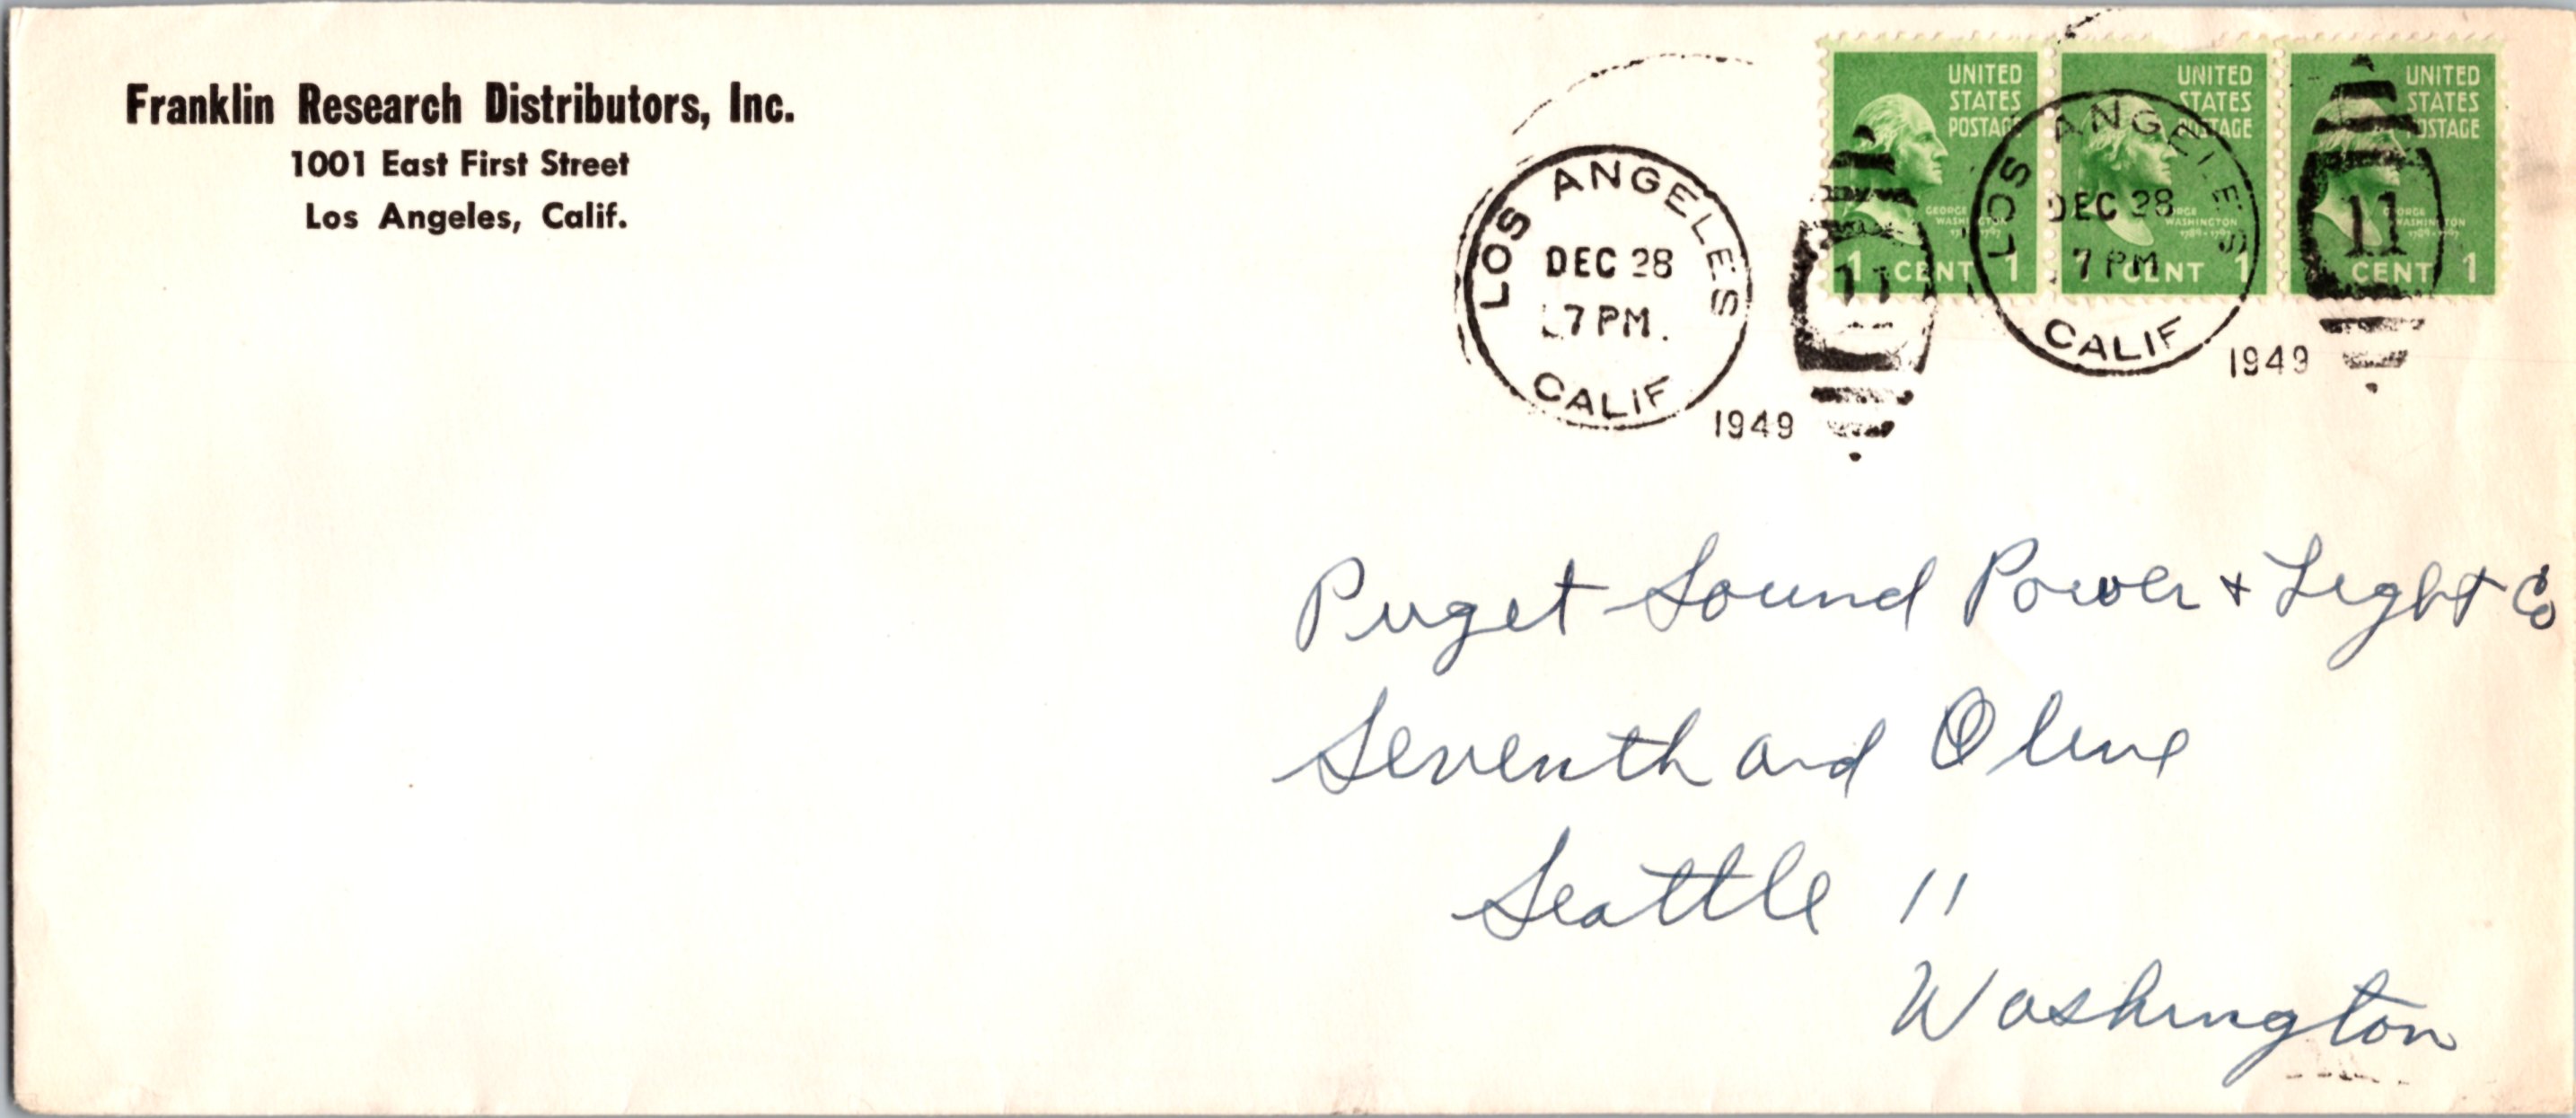 Franklin Research Distributors, Inc.
1001 East First Street
Los Angeles, Calif.
LOS ANGELES
DEC 28
7 PM
CALIF
1949
11
UNITED
STATES
POSTAGE
GEORGE
WASHINGTON
1 CENT 1
LOS ANGELES
DEC 28
7 PM
CALIF
1949
UNITED
STATES
POSTAGE
GEORGE
WASHINGTON
1789-1797
1 CENT 1
11
UNITED
STATES
POSTAGE
GEORGE
WASHINGTON
1789-1797
CENT 1
Puget Sound Power + Light Co
Seventh and Olive
Seattle 11
Washington